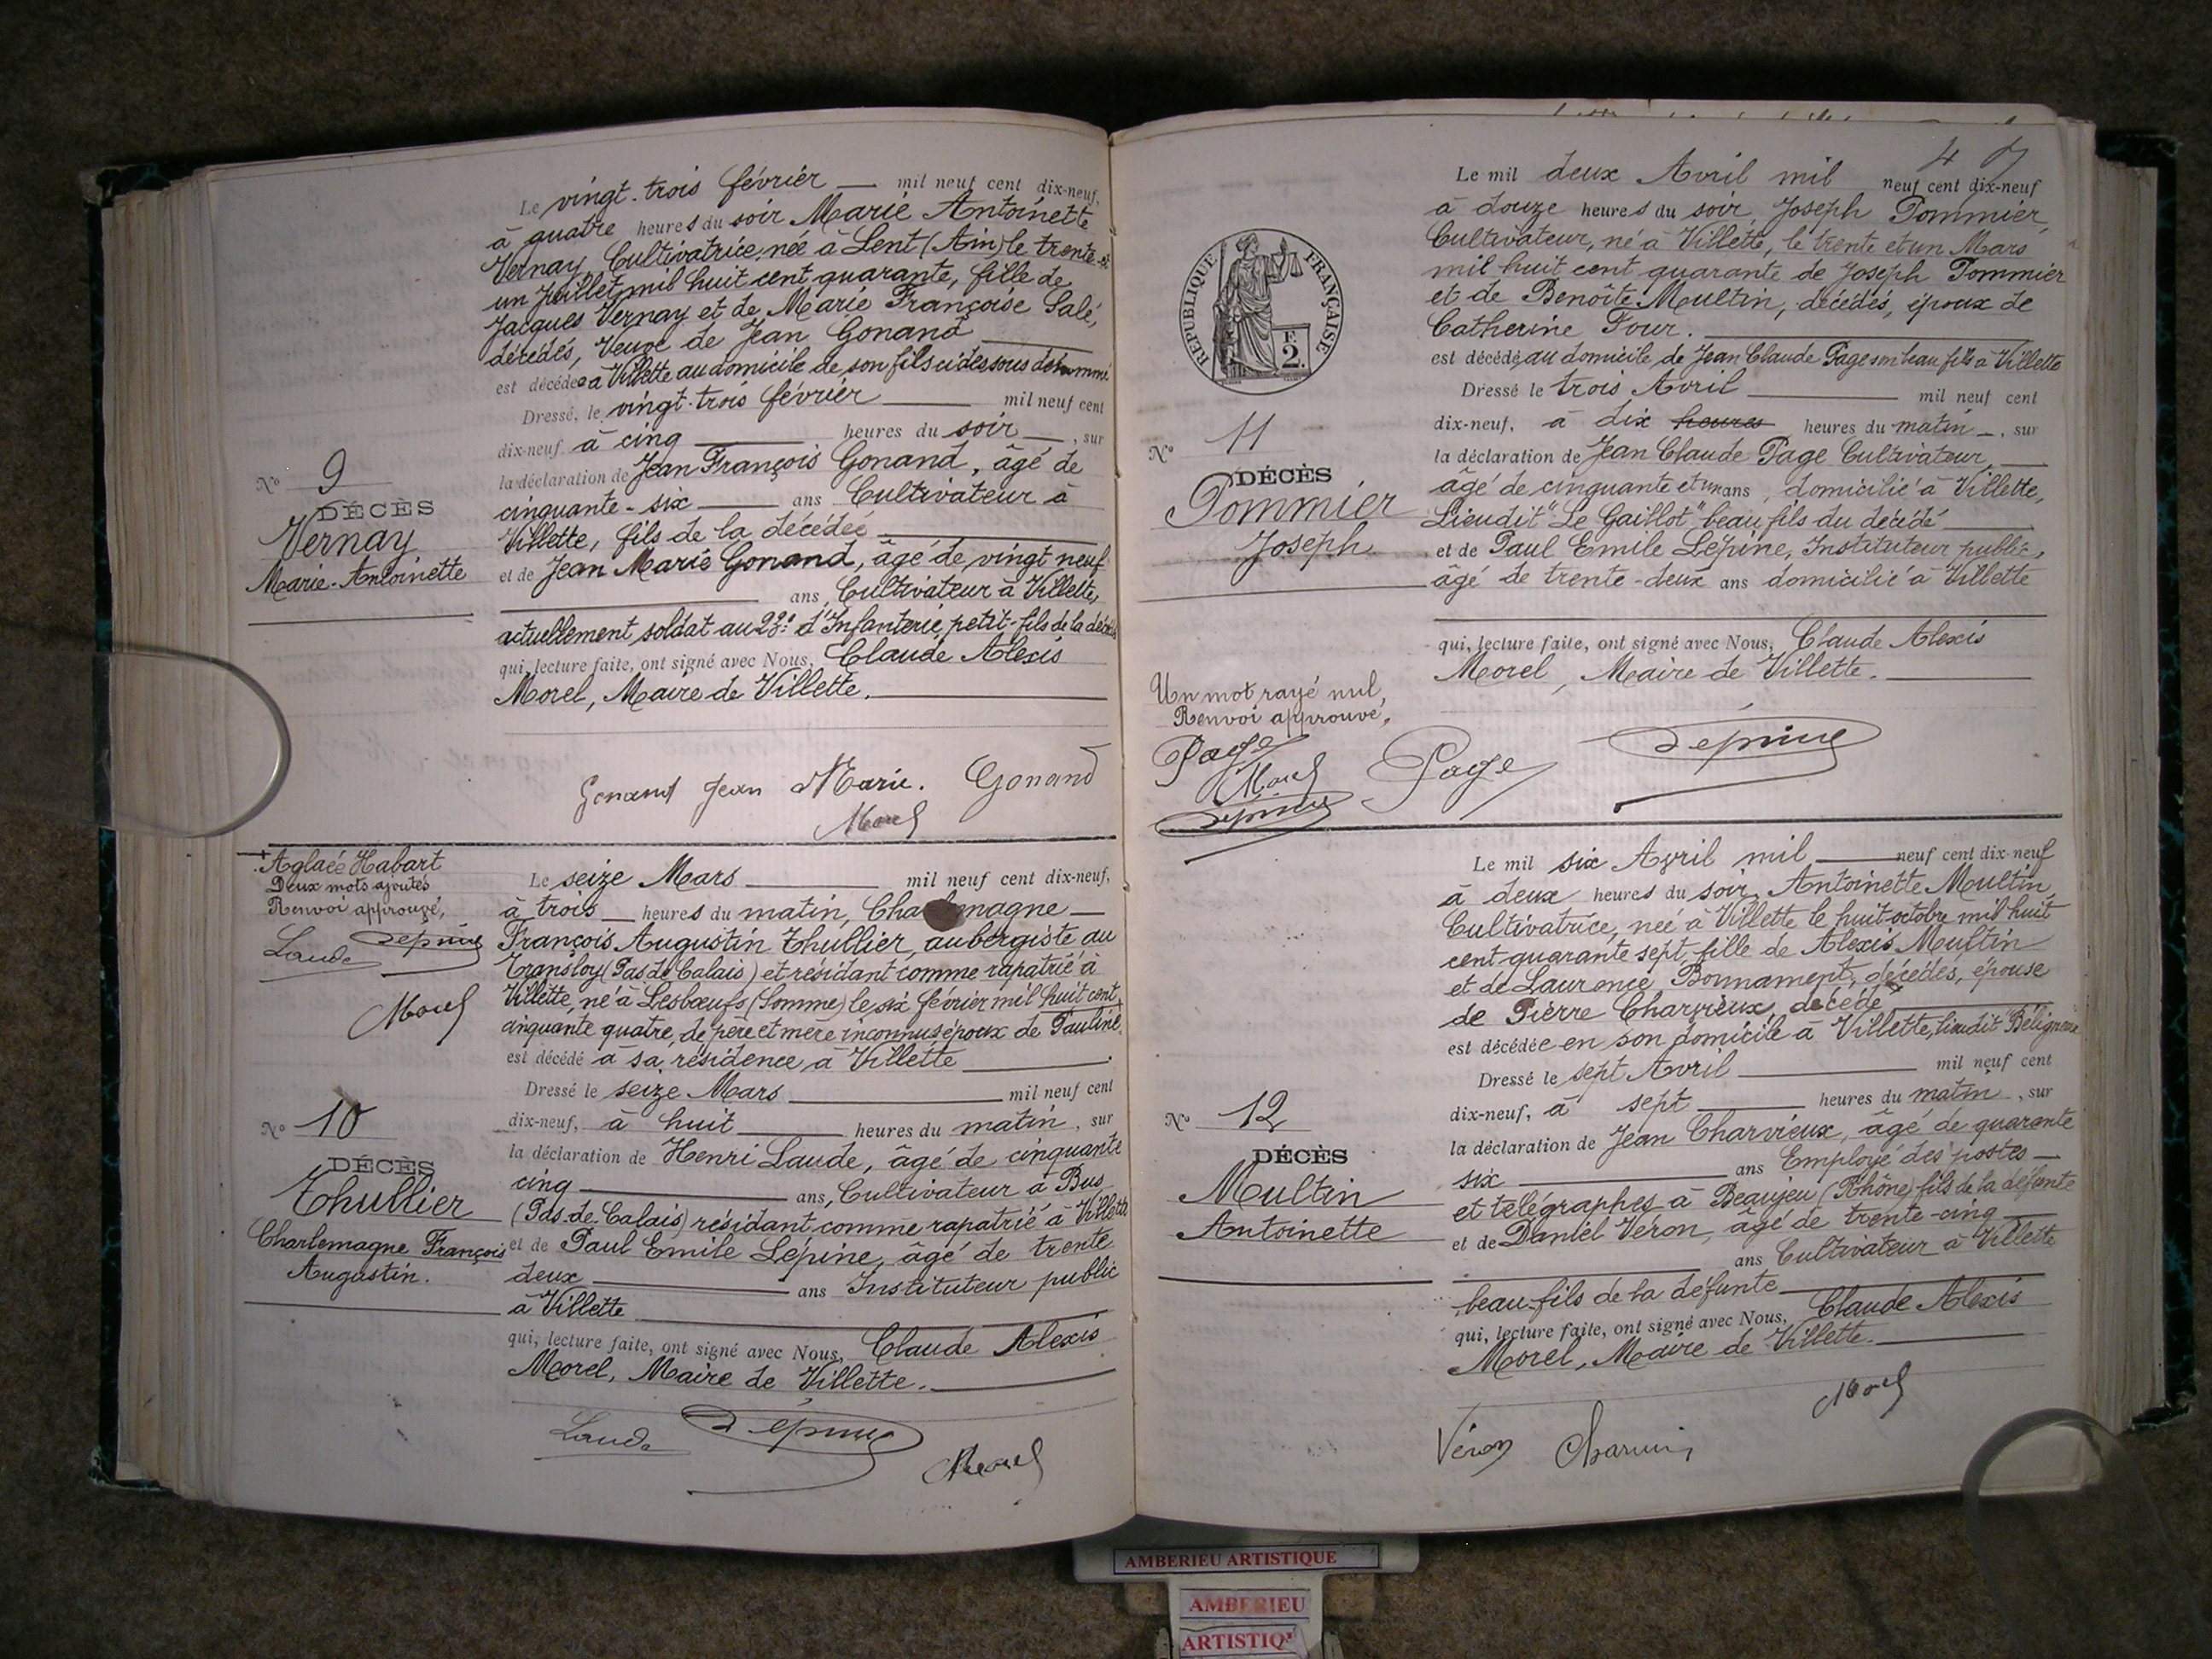 Le vingt-trois février — mil neuf cent dix-neuf,
à quatre heures du soir Marie Antoinette
Vernay Cultivatrice, née à Lent (Ain) le trente et
un Juillet mil huit cent quarante, fille de
Jacques Vernay et de Marie Françoise Salé,
décédés, Veuve de Jean Gonand
est décédée à Villette au domicile de son fils ci dessous dénommé
Dressé, le vingt-trois février mil neuf cent
dix-neuf à cinq heures du soir, sur
la déclaration de Jean François Gonand, âgé de
cinquante-six ans Cultivateur à
Villette, fils de la décédée
et de Jean Marie Gonand, âgé de vingt neuf
ans, Cultivateur à Villette,
actuellement soldat au 23e d'Infanterie, petit-fils de la décédée
qui, lecture faite, ont signé avec Nous, Claude Alexis
Morel, Maire de Villette.
N° 9
DÉCÈS
Vernay
Marie-Antoinette
Gonand Jean Marie. Gonand
Morel
+ Aglaée Habart
Deux mots ajoutés
Renvoi approuvé,
Laude Lépine
Morel
Le seize Mars mil neuf cent dix-neuf,
à trois heures du matin, Charlemagne
François Augustin Thullier, aubergiste au
Transloy (Pas de Calais) et résidant comme rapatrié à
Villette, né à Lesbœufs (Somme) le six février mil huit cent
cinquante quatre, de père et mère inconnus époux de Pauline +
est décédé à sa résidence à Villette
Dressé le seize Mars mil neuf cent
dix-neuf, à huit heures du matin, sur
la déclaration de Henri Laude, âgé de cinquante
cinq ans, Cultivateur à Bus
(Pas-de-Calais) résidant comme rapatrié à Villette
et de Paul Emile Lépine, âgé de trente
deux ans Instituteur public
à Villette
qui, lecture faite, ont signé avec Nous, Claude Alexis
Morel, Maire de Villette.
N° 10
DÉCÈS
Thullier
Charlemagne François
Augustin.
Laude Lépine
Morel
47
Le mil deux Avril mil neuf cent dix-neuf
à douze heures du soir, Joseph Pommier,
Cultivateur, né à Villette, le trente et un Mars
mil huit cent quarante de Joseph Pommier
et de Benoîte Moultin, décédés, époux de
Catherine Four.
est décédé au domicile de Jean Claude Page son beau fils à Villette
Dressé le trois Avril mil neuf cent
dix-neuf, à dix heures heures du matin, sur
la déclaration de Jean Claude Page Cultivateur
âgé de cinquante et un ans, domicilié à Villette,
Lieudit "Le Gaillot" beau fils du décédé
et de Paul Emile Lépine, Instituteur public,
âgé de trente-deux ans domicilié à Villette
qui, lecture faite, ont signé avec Nous, Claude Alexis
Morel, Maire de Villette.
REPUBLIQUE FRANÇAISE
F.
2.
N° 11
DÉCÈS
Pommier
Joseph
Un mot rayé nul,
Renvoi approuvé,
Page
Morel
Lépine
Page Lépine
Le mil six Avril mil neuf cent dix-neuf
à deux heures du soir, Antoinette Moultin
Cultivatrice, née à Villette le huit octobre mil huit
cent quarante sept, fille de Alexis Multin
et de Laurence Bonnament, décédés, épouse
de Pierre Charvieux, décédé
est décédée en son domicile à Villette, lieudit Béligneux
Dressé le sept Avril mil neuf cent
dix-neuf, à sept heures du matin, sur
la déclaration de Jean Charvieux, âgé de quarante
six ans Employé des postes
et télégraphes à Beaujeu (Rhône) fils de la défunte
et de Daniel Véron, âgé de trente-cinq
ans Cultivateur à Villette
beau-fils de la défunte
qui, lecture faite, ont signé avec Nous, Claude Alexis
Morel, Maire de Villette.
N° 12
DÉCÈS
Multin
Antoinette
Morel
Véron
AMBERIEU ARTISTIQUE
AMBERIEU
ARTISTIQ